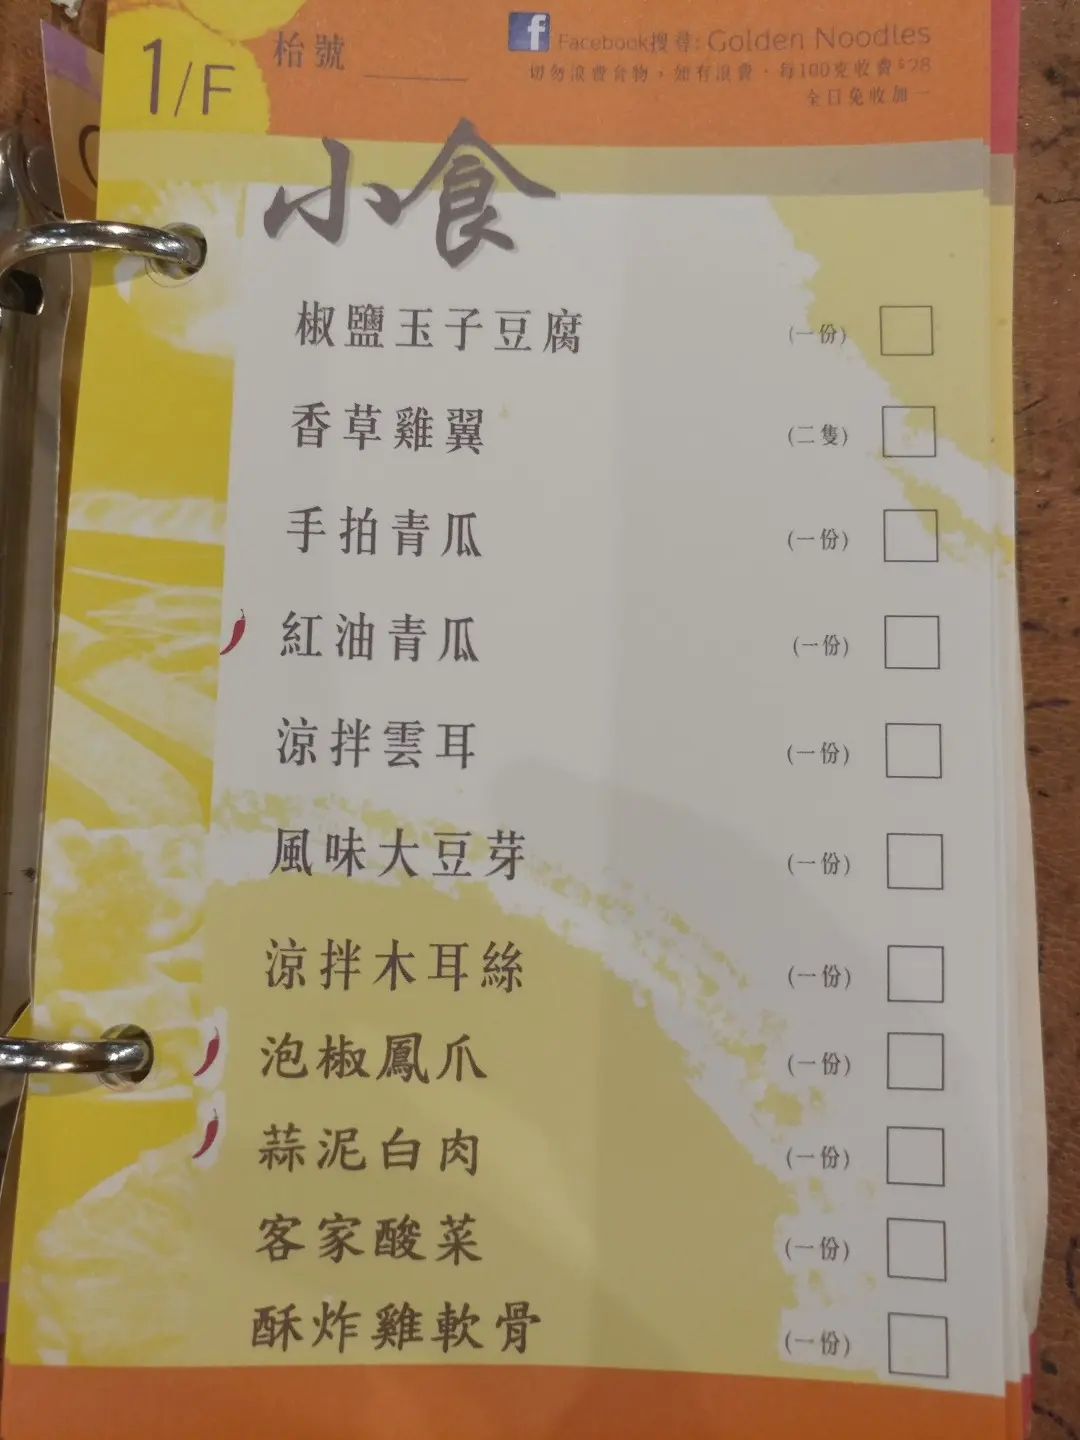 1/F
枱號
Facebook搜尋: Golden Noodles
切勿浪費食物，如有浪費，每100克收費$28
全日免收加一
小食
椒鹽玉子豆腐 (一份)
香草雞翼 (二隻)
手拍青瓜 (一份)
紅油青瓜 (一份)
涼拌雲耳 (一份)
風味大豆芽 (一份)
涼拌木耳絲 (一份)
泡椒鳳爪 (一份)
蒜泥白肉 (一份)
客家酸菜 (一份)
酥炸雞軟骨 (一份)